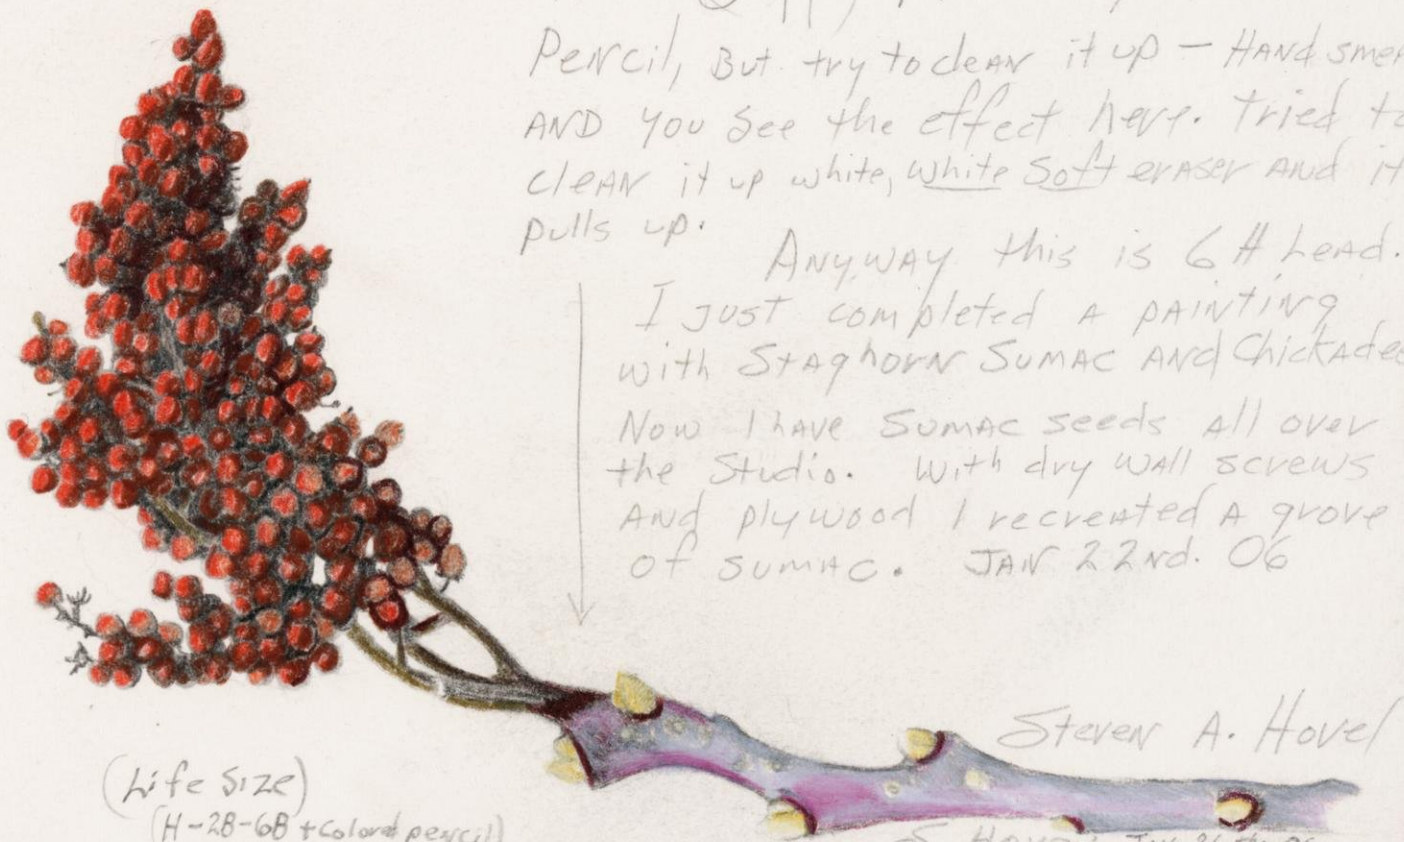 Pencil, But try to clean it up — Hand
AND you see the effect here. Tried to
clean it up white, white soft eraser and it
pulls up.
Anyway this is 6H Lead.
I just completed a painting
with Staghorn Sumac and Chickadee
Now I have sumac seeds all over
the Studio. With dry wall screws
And plywood I recreated a grove
of sumac. JAN 22nd. 06
Steven A. Hovel
(Life Size)
(H-2B-6B + Colored pencil)